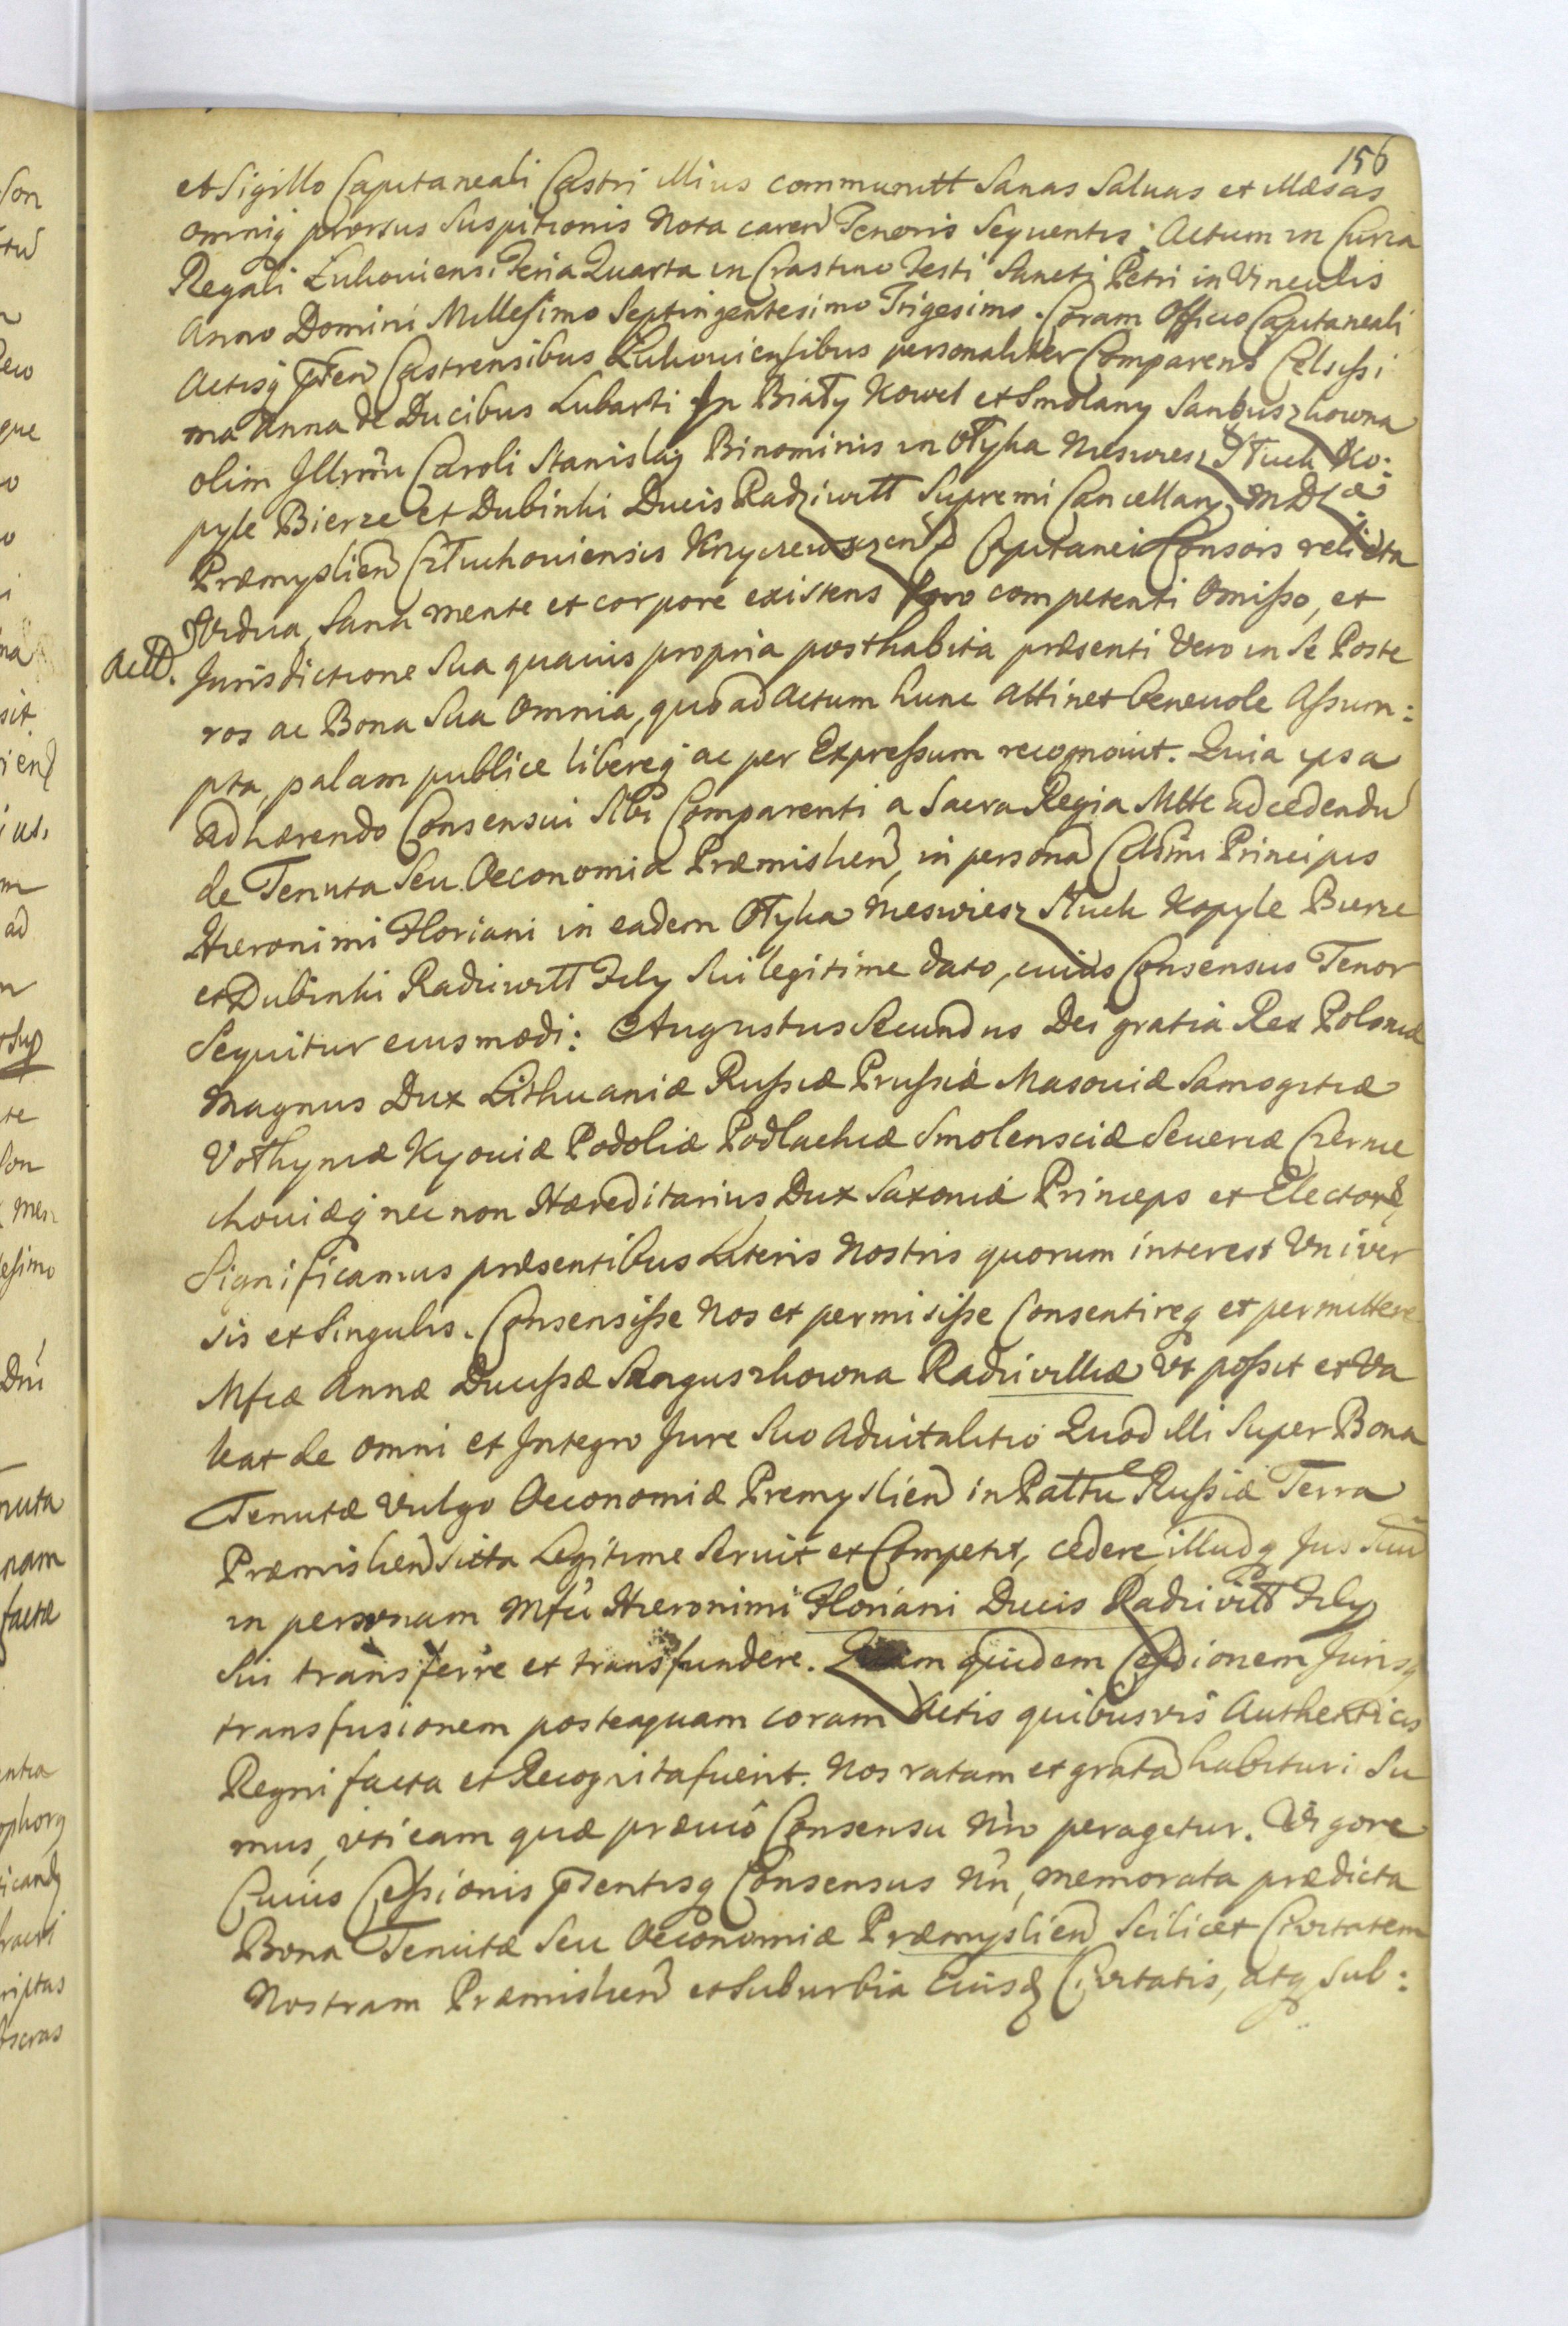 156
et Sigillo Capitaneali Castri illius communitt Sanas Saluas et illæsas
omniq prorsus Suspitionis Nota caren Tenoris Sequentis: Actum in Curia
Regali Lukouiensi Feria Quarta in Crastino Festi Sancti Petri in Vinculis
Anno Domini Millesimo Septingentesimo Trigesimo. Coram Officio Capitaneali
Actisq pñten Castrensibus Lukouiensibus personaliter Comparens Celsissi
ma Anna de Ducibus Lubarti in Biały Kowel et Smolany Sanguszkowna
olim Illrmi Caroli Stanislai Binominis in Ołyka Nieswiesz Słuck Ko:
pyle Bierze et Dubinki Ducis Radziwitt Supremi Cancellarij M D L æ
Præmyslien Człuchouiensis Capitanei Consors relicta
Vidua, Sana mente et corpore existens foro competenti omisso, et
Actt. Jurisdictione Sua quauis propria posthabita præsenti Vero in Se Poste
ros ac Bona Sua Omnia, quo ad Actum hunc attinet beneuole Assum:
pta, palam publice libereq ac per Expressum recognouit. Quia ipsa
adhærendo Consensui Sibi Comparenti a Sacra Regia Mtte ad cedendū
de Tenuta Seu Oeconomia Præmislien, in personā Celsmi Principis
Hieronimi Floriani in eadem Ołyka Nieswiesz Słuck Kopyle Bierze
et Dubinki Radziwitt Filij Sui legitime dato, cuius Consensus Tenor
Sequitur eiusmodi: Augustus Secundus Dei gratia Rex Poloniæ
Magnus Dux Lithuaniæ Russiæ Prussiæ Masouiæ Samogitiæ
Vołhyniæ Kyouiæ Podoliæ Podlachiæ Smolensciæ Seueriæ Czernie
chouiæq nec non Hæreditarius Dux Saxoniæ Princeps et Elector
Significamus præsentibus Literis Nostris quorum interest Univer
sis et Singulis. Consensisse Nos et permisisse Consentireq et permittere
Mfcæ Annæ Ducissæ Sanguszkowna Radziwilliæ Vt possit et Va
leat de omni et Integro Jure Suo Aduitalitio Quod illi Super Bona
Tenutæ Vulgo Oeconomiæ Premyslien in Pałłtu Russiæ Terra
Præmislien Sitta Legitime Seruit et Competit, cedere illudq Jus Suū
in personam Mfci Hieronimi Floriani Ducis Radziwitt Filij
Sui transferre et transfundere. Quam quidem Cessionem Jurisq
transfusionem posteaquam coram Actis quibusvis Authenticis
Regni facta et Recognita fuerit. Nos ratam et gratā habituri Su
mus, vti eam quæ præuio Consensu Nro peragetur. Vigore
Cuius Cessionis pñtentisq Consensus Nri, memorata prædicta
Bona Tenutæ Seu Oeconomiæ Præmyslien Scilicet Ciuitatem
Nostram Præmislien et Suburbia Eiusd Ciuitatis, atq Sub: